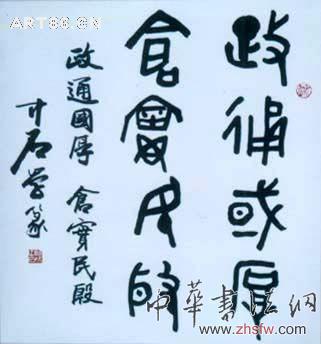 ART86.CN
政通國厚
倉實民殷
政通國厚 倉實民殷
石学篆
中華书法网
www.zhsfw.com